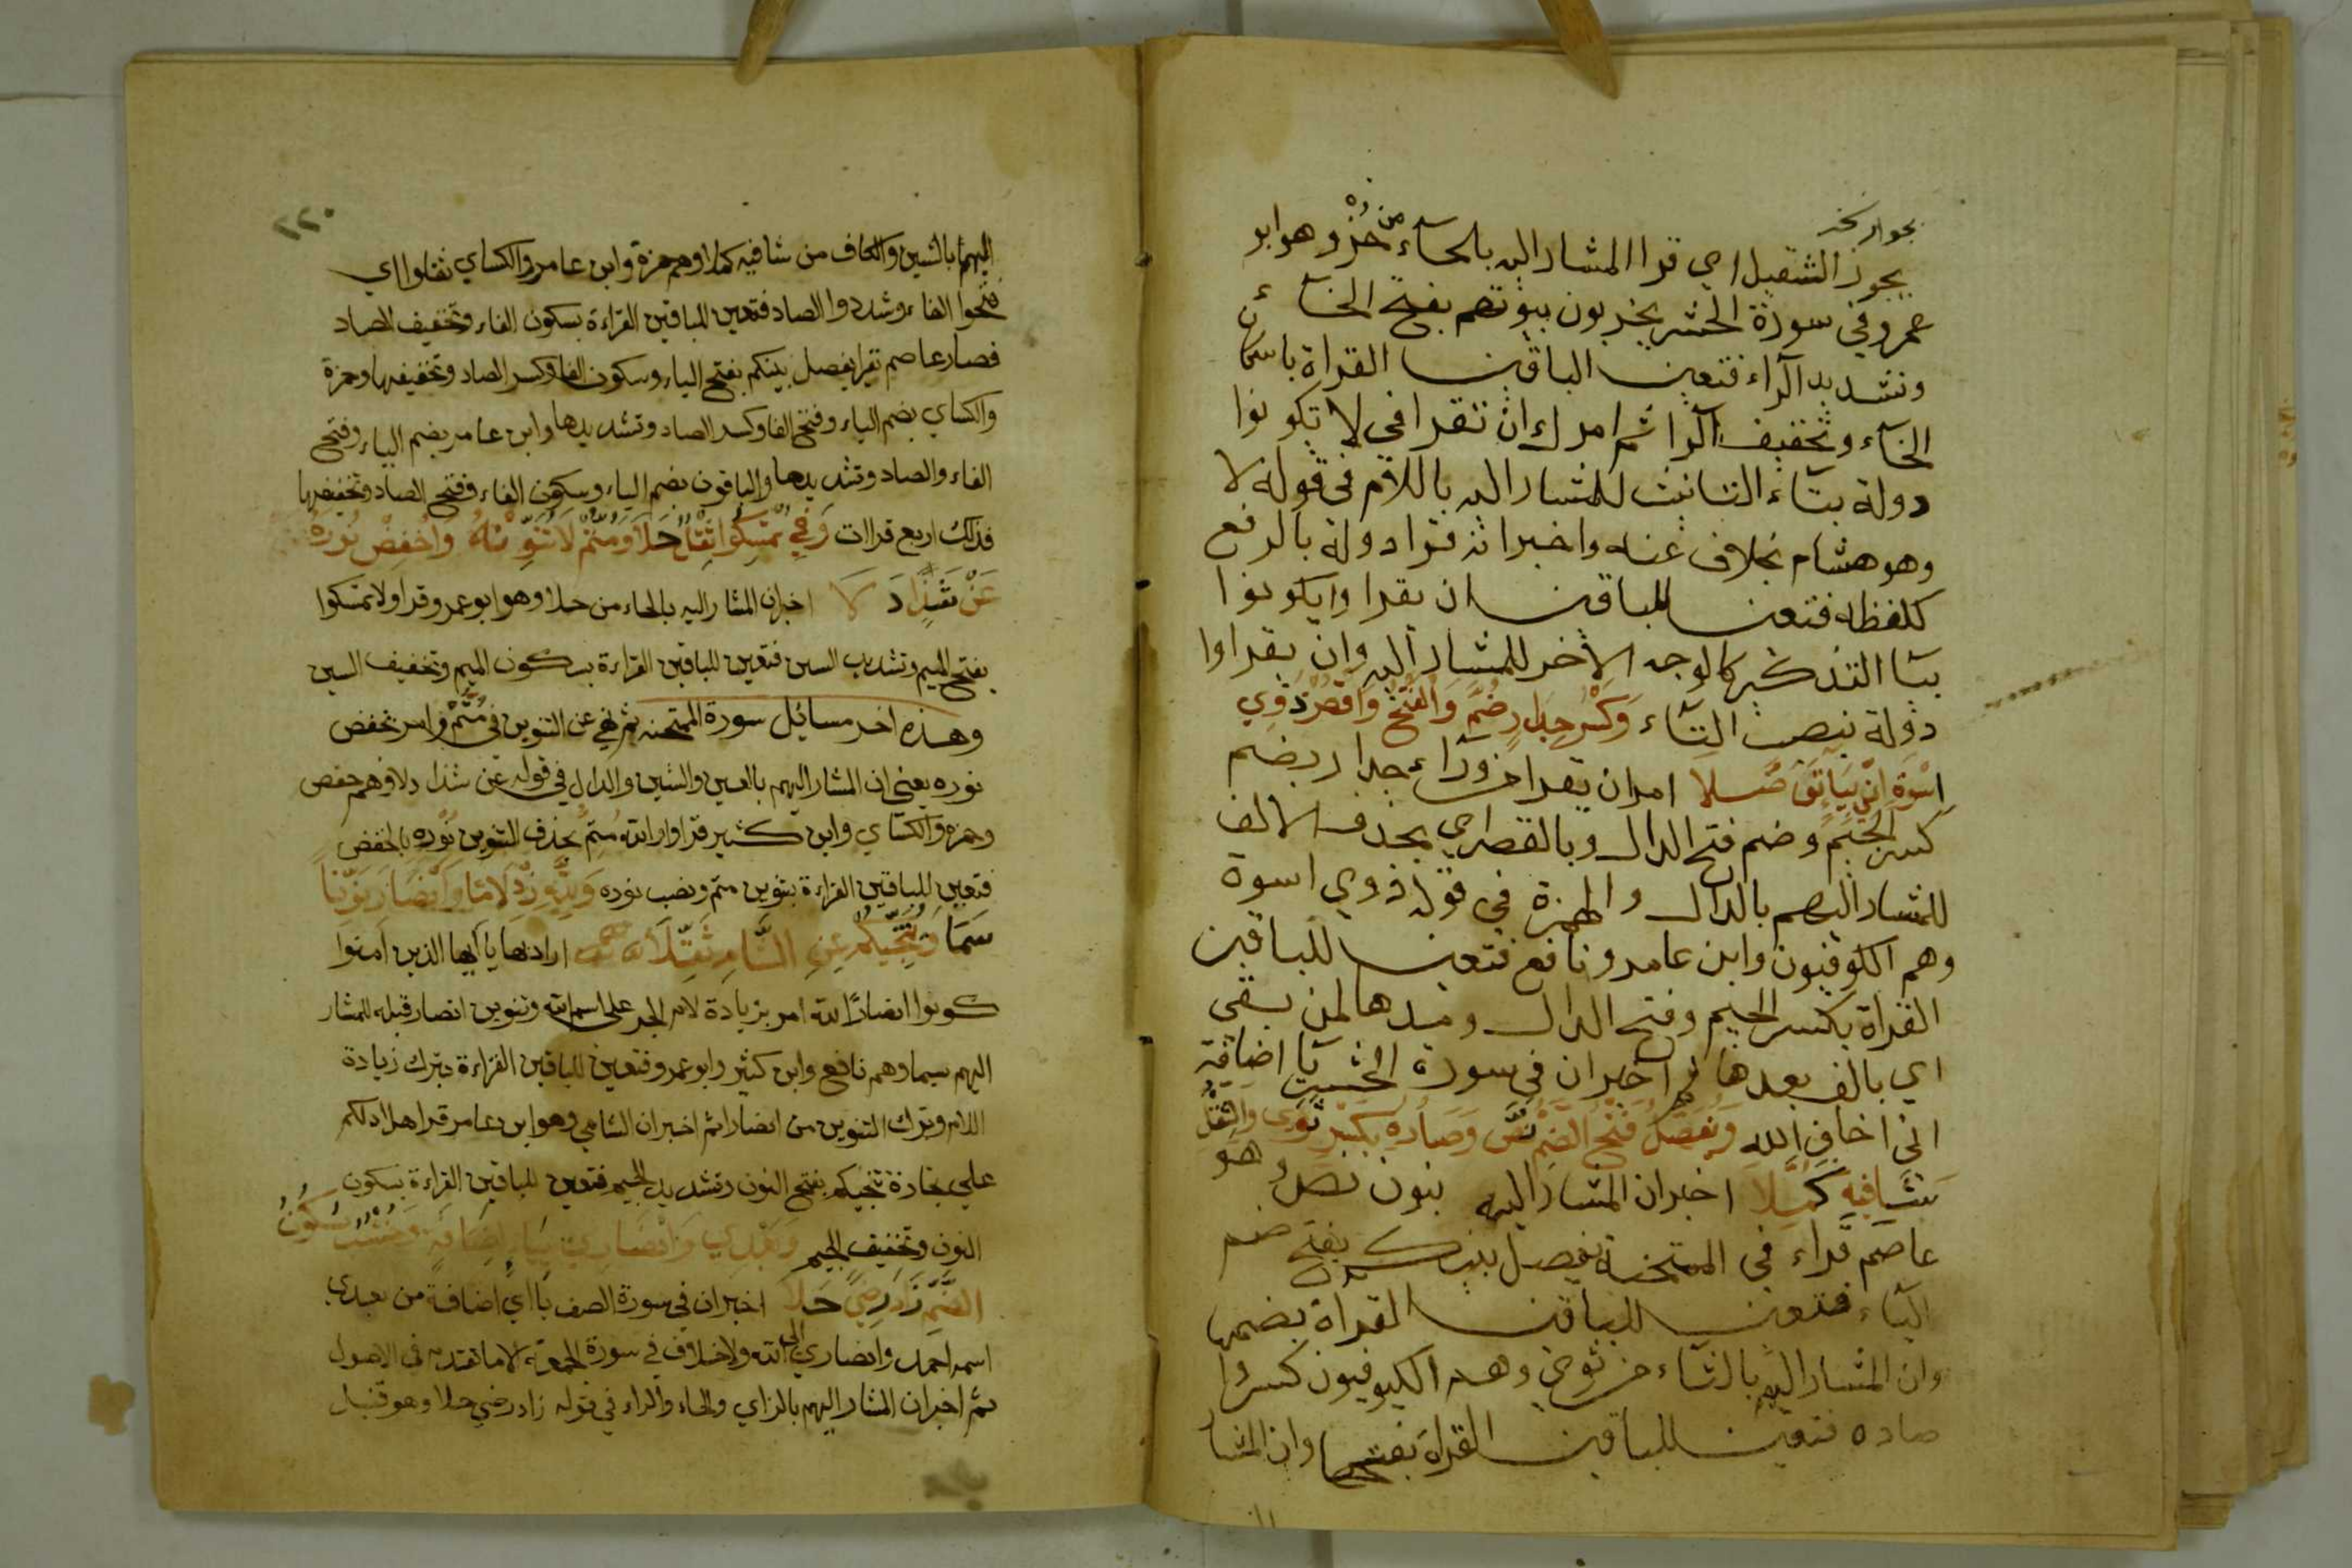 بجواز نخه
يجوز الثقيل اي قرا المشار اليه بالحاء من حُزْ وهو ابو
عمرو في سورة الحشر يخربون بيوتهم بفتح الخاء
وتشديد الراء فتعين الباقين القراة باسكان
الخاء وتخفيف الرا ثم امرك ان تقرا في لا تكونوا
دولة بتاء التانيث للمشار اليه باللام في قوله لا
وهو هشام بخلاف عنه واخبر انه قرا دولة بالرفع
كلفظه فتعين للباقين ان يقرا وا يكونوا
بيا التذكير كالوجه الاخر للمشار اليه وان يقراوا
دولة بنصب التاء وَكَسْرُ جِدَارٍ ضُمَّ وَالْفَتْحَ وَاقْصُرْ ذَوِي
اسْوَةٍ انِّي بِيَاتِ تَوَصَّلا امر ان يقرا من وراء جدار بضم
كسر الجيم وضم فتح الدال وبالقصر اي بحذف الالف
للمشار اليهم بالذال والهمزة في قوله ذوي اسوة
وهم الكوفيون وابن عامر ونافع فتعين للباقين
القراة بكسر الجيم وفتح الدال ومدها لمن بقي
اي بالف بعدها ثم اخبر ان في سورة الحشر يا اضافة
اني اخاف الله وَيُفْصَلُ فَتْحُ الضَّمِّ نَصٌّ وَصَادُهُ بِكَسْرٍ ثَوَى وَالثِّقْلُ
شَافِيهِ كُمِّلا اخبر ان المشار اليه بنون نصٌ وهو
عاصم قراء في الممتحنة يفصل بينكم بفتح ضم
الياء فتعين للباقين القراة بضمها
وان المشار اليهم بالثاء من ثوى وهم الكيوفيون كسروا
صاده فتعين للباقين القراة بفتحها وان المشا
٢٢٠
اليهما بالشين والكاف من شافيه كملا وهم حمزة وابن عامر والكساي ثقلوا اي
فتحوا الفاء وشددوا الصاد فتعين للباقين القراءة بسكون الفاء وتخفيف الصاد
فصار عاصم يقرا يفصل بينكم بفتح الياء وسكون الفا وكسر الصاد وتخفيفها وحمزة
والكساي بضم الياء وفتح الفا وكسر الصاد وتشديدها وابن عامر بضم الياء وفتح
الفاء والصاد وتشديدها والباقون بضم الياء وسكون الفاء وفتح الصاد وتخفيفها
فذلك اربع قراات وَفِي تُمْسِكُوا ثِقْلٌ حَلَا وَمُتِمُّ لَا تُنَوِّنْهُ وَاخْفِضْ نُورَهُ
عَنْ شَذًا دَلَا اخبر ان المشار اليه بالحاء من حلا وهو ابو عمرو قرا ولا تمسكوا
بفتح الميم وتشديد السين فتعين للباقين القراءة بسكون الميم وتخفيف السين
وهذه اخر مسائل سورة الممتحنه ثم نهي عن التنوين في مُتِمُّ وامر بخفض
نوره يعني ان المشار اليهم بالعين والشين والدال في قوله عن شذا دلا وهم حفص
وحمزه والكساي وابن كثير قراوا والله مُتِمُّ بحذف التنوين نُوْرِهِ بالخفض
فتعين للباقين القراءة بتنوين متم ونصب نوره وَلِلَّهِ زِدْ لَامًا وَأَنْصَارَ نَوِّنًا
سَمَا وَتُنَجِّيكُمْ عَنِ الشَّامِ ثُقِّلَا اراد بها يا ايها الذين امنوا
كونوا انصارًا لله امر بزيادة لام الجر على اسم الله وتنوين انصار قبله للمشار
اليهم بسما وهم نافع وابن كثير وابو عمرو فتعين للباقين القراءة بترك زيادة
اللام وترك التنوين من انصارا ثم اخبر ان الشامي وهو ابن عامر قرا هل ادلكم
علي تجارة تنجيكم بفتح النون وتشديد الجيم فتعين للباقين القراءة بسكون
النون وتخفيف الجيم وَبَعْدِي وَأَنْصَارِي بِيَاءِ إِضَافَةٍ وَخُشْبٌ سُكُونُ
الضَّمِّ زَادَ رِضًى حَلَا اخبر ان في سورة الصف يا اي اضافة من بعدي
اسمه احمد وانصاري الى الله ولا خلاف في سورة الجمعة الا ما تقدم في الاصول
ثم اخبر ان المشار اليهم بالزاي والحاء والراء في قوله زاد رضي حلا وهو قنبل